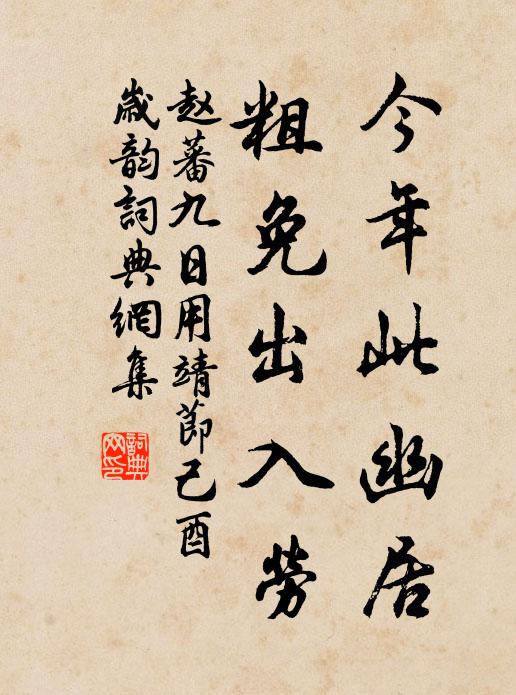 今年此幽居
粗免出入勞
赵蕃九日用靖節己酉
歲韵詞典網集
詞典網印